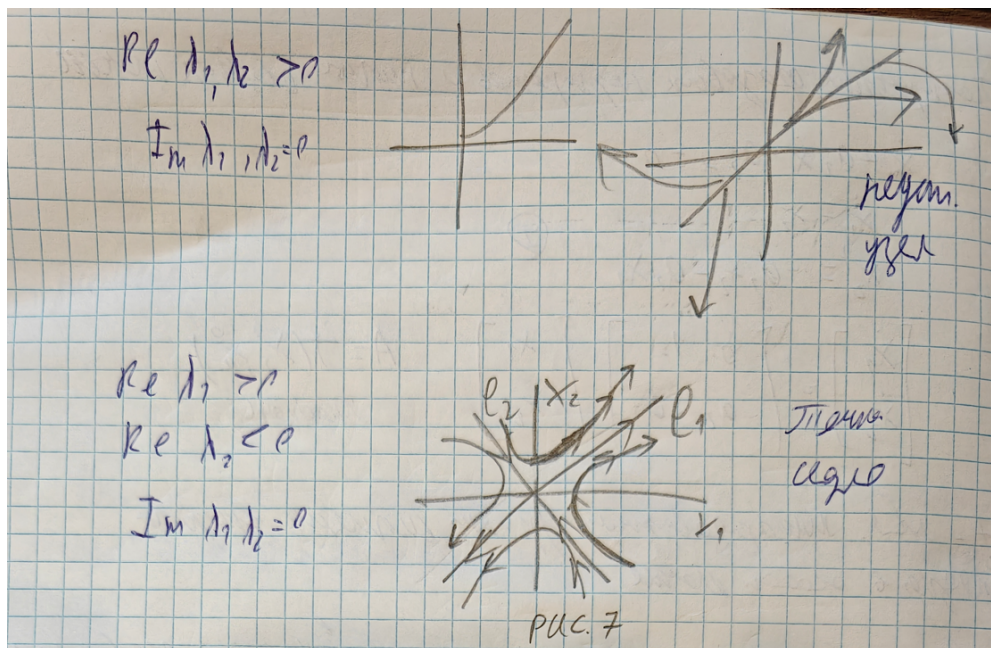 Re λ₁, λ₂ > 0
Im λ₁, λ₂ = 0
неуст.
узел
Re λ₁ > 0
Re λ₂ < 0
Im λ₁ λ₂ = 0
e₂
x₂
e₁
x₁
Точка
седло
рис. 7